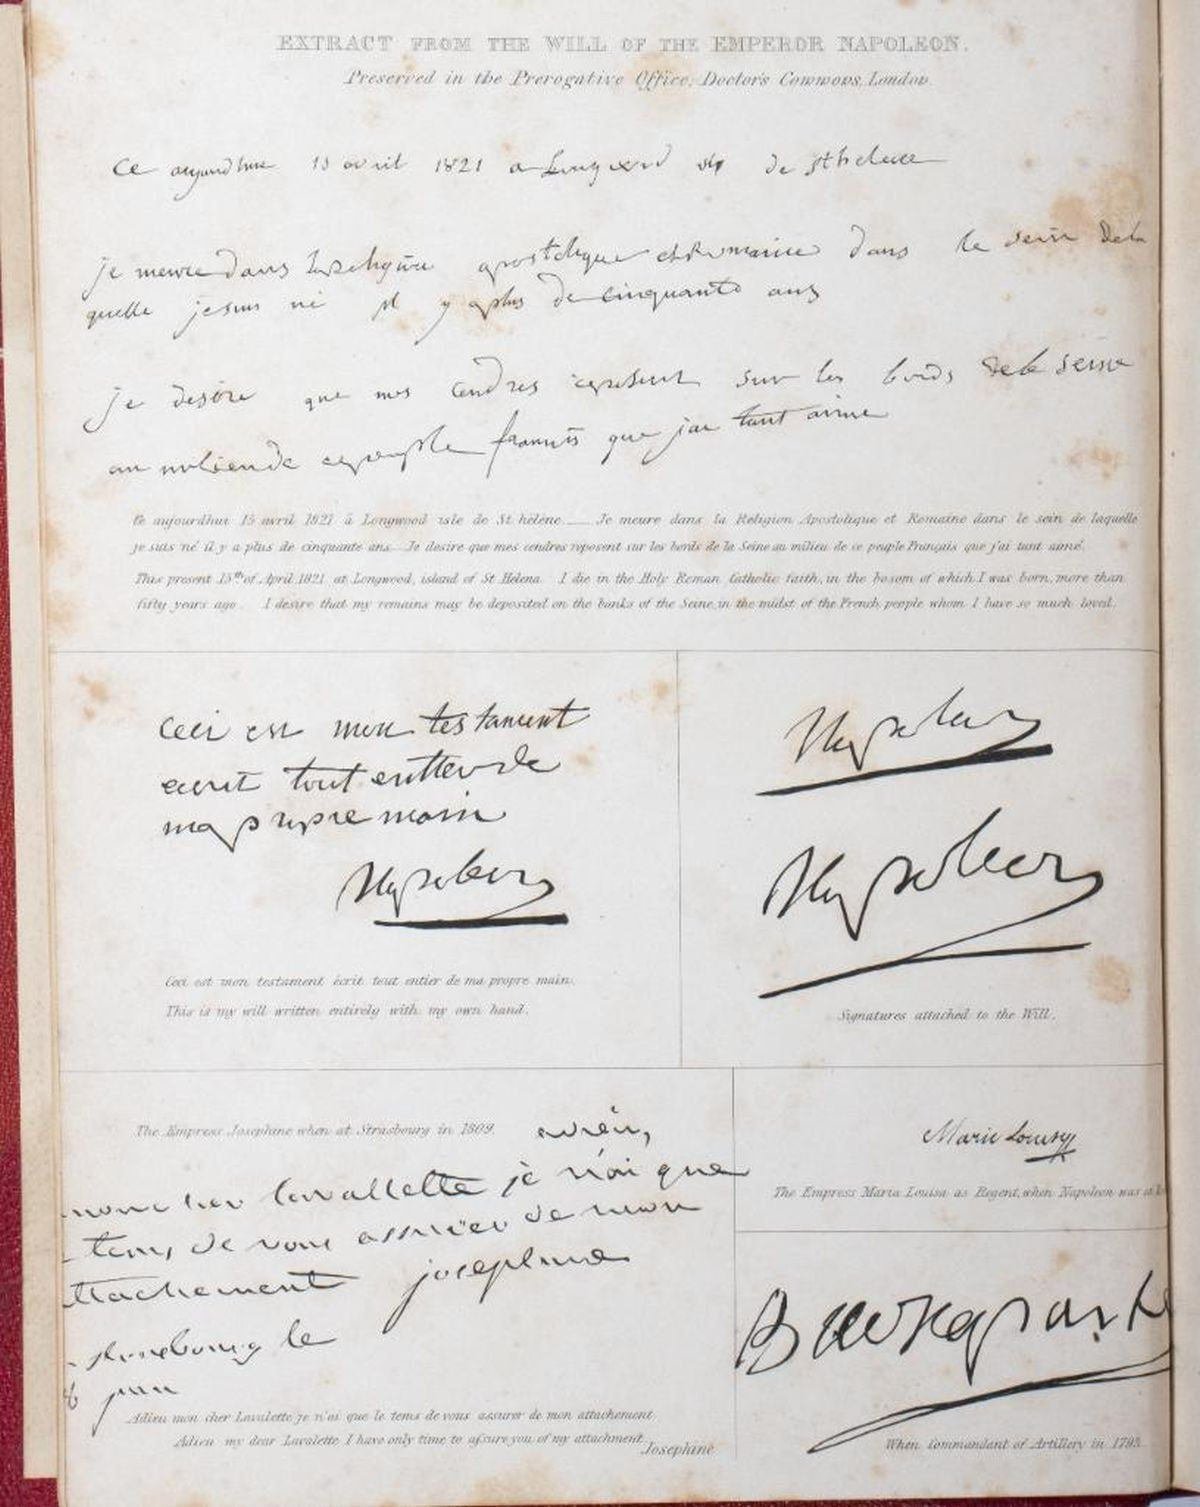 EXTRACT FROM THE WILL OF THE EMPEROR NAPOLEON.
Preserved in the Prerogative Office, Doctor's Commons, London.
Ce aujourdhui 15 avril 1821 a Longwood de St helene
je meure dans la religion apostolique et Romaine dans le sein dela
quelle je suis né il y a plus de cinquante ans
je desire que mes cendres reposent sur les bords de la seine
au milieu de ce peuple francais que jai tant aimé
Ce aujourdhui 15 avril 1821 à Longwood isle de St. hélène.__ Je meure dans la Religion Apostolique et Romaine dans le sein de laquelle
je suis né il y a plus de cinquante ans__ Je desire que mes cendres reposent sur les bords de la Seine au milieu de ce peuple Français que j'ai tant aimé.
This present 15th of April 1821 at Longwood, island of St Helena. I die in the Holy Roman Catholic faith, in the bosom of which I was born, more than
fifty years ago. I desire that my remains may be deposited on the banks of the Seine, in the midst of the French people whom I have so much loved.
Ceci est mon testament
ecrit tout entier de
ma propre main
Napoleon
Ceci est mon testament écrit tout entier de ma propre main.
This is my will written entirely with my own hand.
Napoleon
Napoleon
Signatures attached to the Will.
The Empress Josephine when at Strasbourg in 1809.
adieu,
mon cher lavallette je n'ai que
tems de vous assurer de mon
ttachement josephine
strasbourg le
juin
Adieu mon cher Lavalette je n'ai que le tems de vous assurer de mon attachement.
Adieu my dear Lavalette I have only time to assure you of my attachment.
Josephine
Marie Louise
The Empress Maria Louisa as Regent, when Napoleon was at
Buonaparte
When Commandant of Artillery in 1793.